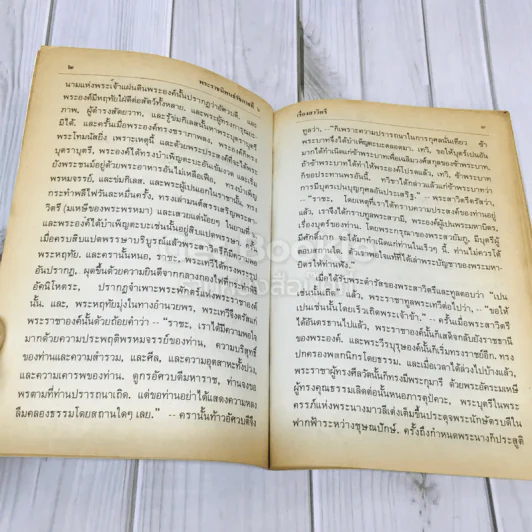 ๒
พระราชนิพนธ์รัชกาลที่ ๖
นามแห่งพระเจ้าแผ่นดินพระองค์นั้นปรากฏว่าอัศวบดี, และ
พระองค์มีหฤทัยใฝ่ดีต่อสัตว์ทั้งหลาย,
ภาพ, ผู้ดำรงสัตยวาท, และรู้ข่มกิเลสนั้นหาพระบุตราบุตรี
มิได้. และครั้นเมื่อพระองค์ทรงชราภาพลง,
พระโทมนัสยิ่ง เพราะเหตุนี้ และด้วยพระประสงค์ที่จะ
บุตราบุตรี, พระองค์ได้ทรงบำเพ็ญตะบะอันเข้มงวด
ยังพระชนม์อยู่ด้วยพระอาหารอันไม่เหลือเฟือ, ทรงบำเพ็ญ
พรหมจรรย์, และข่มกิเลส, และพระผู้เปนเอกในราชานั้น, ทรง
กระทำพลีไฟวันละหมื่นครั้ง, ทรงเล่ามนต์สรรเสริญพระสา-
วิตรี (มเหษีของพระพรหมา) และเสวยแต่น้อยๆ ในยามที่
และพระองค์ได้บำเพ็ญตะบะเช่นนั้นอยู่สิบแปดพรรษา,
เมื่อครบสิบแปดพรรษาบริบูรณ์แล้วพระสาวิตรีก็มีความพอ
พระหฤทัย, และครานั้นหนอ, ราชะ, พระเทวีได้ทรงพระรูป
อันปรากฏ, ผุดขึ้นด้วยความยินดีจากกลางกองไฟ
อัคนิโหตระ, ปรากฏจำเพาะพระพักตร์แห่งพระราชาองค์
นั้น, และ, พระหฤทัยมุ่งในทางอำนวยพร, พระเทวีจึ่งตรัสแก่
พระราชาองค์นั้นด้วยถ้อยคำว่า -- "ราชะ, เราได้มีความพอใจ
มากด้วยความประพฤติพรหมจรรย์ของท่าน, ความบริสุทธิ์
ของท่านและความสำรวม, และศีล, และความอุตสาหะทั้งปวง,
และความเคารพของท่าน. ดูกรอัศวบดีมหาราช, ท่านจงขอ
พรตามที่ท่านปรารถนาเถิด. แต่ขอท่านอย่าได้แสดงความหลง
ลืมคลองธรรมโดยสถานใดๆ เลย." -- ครานั้นท้าวอัศวบดีจึ่ง
เรื่องสาวิตรี
๓
ทูลว่า, -- "ก็เพราะความปรารถนาในการกุศลนั่นเทียว ข้า
พระบาทจึ่งได้บำเพ็ญตะบะตลอดมา. เทวี, ขอให้บุตร์เปนอัน
มากได้กำเนิดแก่ข้าพระบาทเพื่อเฉลิมวงศ์สกูลของข้าพระบาท.
ถ้าข้าพระบาททำให้พระองค์โปรดแล้ว, เทวี, ข้าพระบาท
ก็ขอประทานพรอันนี้. ทวิชาได้กล่าวแล้วแก่ข้าพระบาทว่า
การมีบุตร์เปนบุญกุศลอันประเสริฐ." -- พระสาวิตรีตรัสว่า
-- "ราชะ, โดยเหตุที่เราได้ทราบความประสงค์ของท่านอยู่
แล้ว, เราจึ่งได้กราบทูลพระสวามี, พระองค์ผู้เปนพระมหาบิดร,
เรื่องบุตร์ของท่าน. โดยพระกรุณาของพระสวยัมภู, มีบุตรีผู้
มีศักดิ์มาก จะได้มากำเนิดแก่ท่านในเร็วๆ นี้. ท่านไม่ควรโต้
ตอบสถานใด. ด้วยความพอใจเราที่ได้เล่าพระบัญชาของพระมหา-
บิตุร์ให้ท่านฟัง."
เมื่อได้รับพระดำรัสของพระสาวิตรีและทูลตอบว่า "เปน
เช่นนั้นเถิด" แล้ว, พระราชาทูลพระเทวีต่อไปว่า, -- "ขอให้
เปนเช่นนั้นโดยเร็วเถิดพระเจ้าเข้าข้า." -- ครั้นเมื่อพระสาวิตรี
ได้อันตรธานไปแล้ว, พระราชาองค์นั้นก็เสด็จกลับยังราชธานี
ของพระองค์. และพระวีรบุรุษองค์นั้นก็เริ่มทรงราชย์อีก, ทรง
ปกครองพสกนิกรโดยธรรม. และเมื่อเวลาได้ล่วงไปบ้างแล้ว,
พระราชาผู้ทรงศีลวัตนั้นก็ทรงมีพระกุมารี ด้วยพระอัครมเหษี
ผู้ทรงคุณธรรมเลิศต่อนั้นหนอภารตุปัควะ, พระบุตรีในพระ
ครรภ์แห่งพระนางมาวลีเต่งเติมขึ้นประดุจพระนักษัตรบดีใน
ฟากฟ้าระหว่างชุษณปักษ์. ครั้งถึงกำหนดพระนางก็ประสูติ